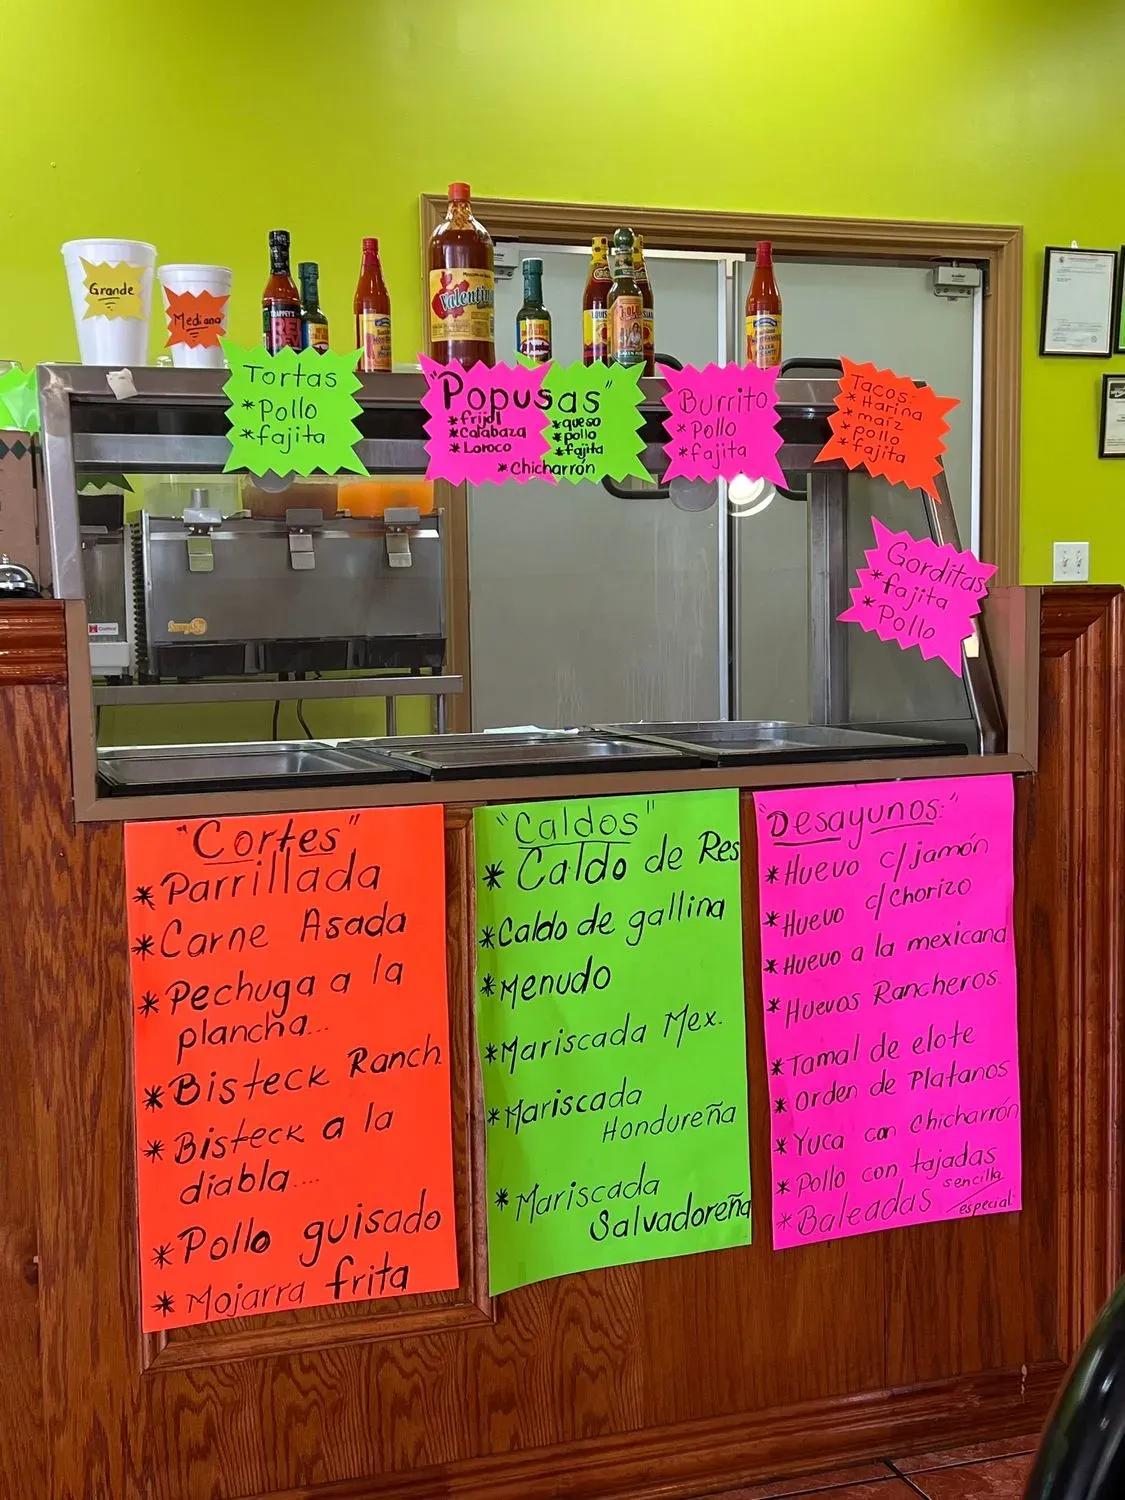 Grande
Mediana
Valentina
Tortas
*Pollo
*fajita
"Popusas"
*frijol
*Calabaza
*Loroco
*queso
*pollo
*fajita
*Chicharrón
Burrito
*Pollo
*fajita
Tacos:
*Harina
*maíz
*pollo
*fajita
Gorditas
*fajita
*Pollo
"Cortes"
*Parrillada
*Carne Asada
*Pechuga a la
plancha...
*Bisteck Ranch.
*Bisteck a la
diabla....
*Pollo guisado
*Mojarra frita
"Caldos"
*Caldo de Res
*Caldo de gallina
*Menudo
*Mariscada Mex.
*Mariscada
Hondureña
*Mariscada
Salvadoreña
"Desayunos:"
*Huevo c/jamón
*Huevo c/chorizo
*Huevo a la mexicana
*Huevos Rancheros.
*Tamal de elote
*Orden de Platanos
*Yuca con Chicharrón
*Pollo con tajadas
*Baleadas sencilla/
especial.